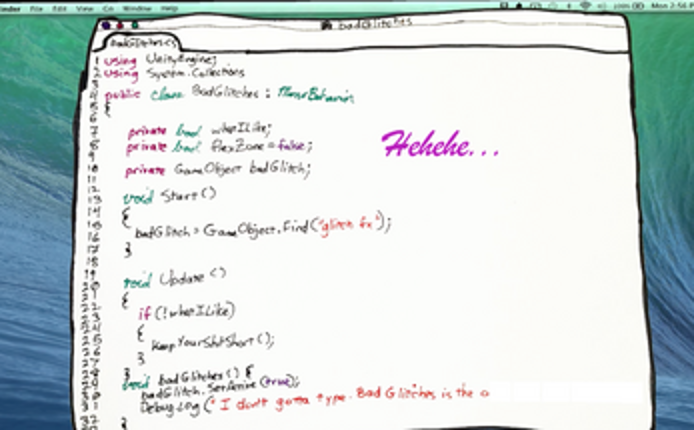 Finder File Edit View Go Window Help Mon 2:56 P
badGlitches
badGlitches.cs
using UnityEngine;
using System.Collections
public class BadGlitches : MonoBehavior
{
private bool whenILike;
private bool flexZone = false;
Hehehe...
private GameObject badGlitch;
void Start ()
{
badGlitch = GameObject.Find("glitch fx");
}
void Update ()
{
if (!whenILike)
{
KeepYourShitShort();
}
}
void badGlitches () {
badGlitch. SetActive (true);
Debug.Log (" I don't gotta type. Bad Glitches is the o
}